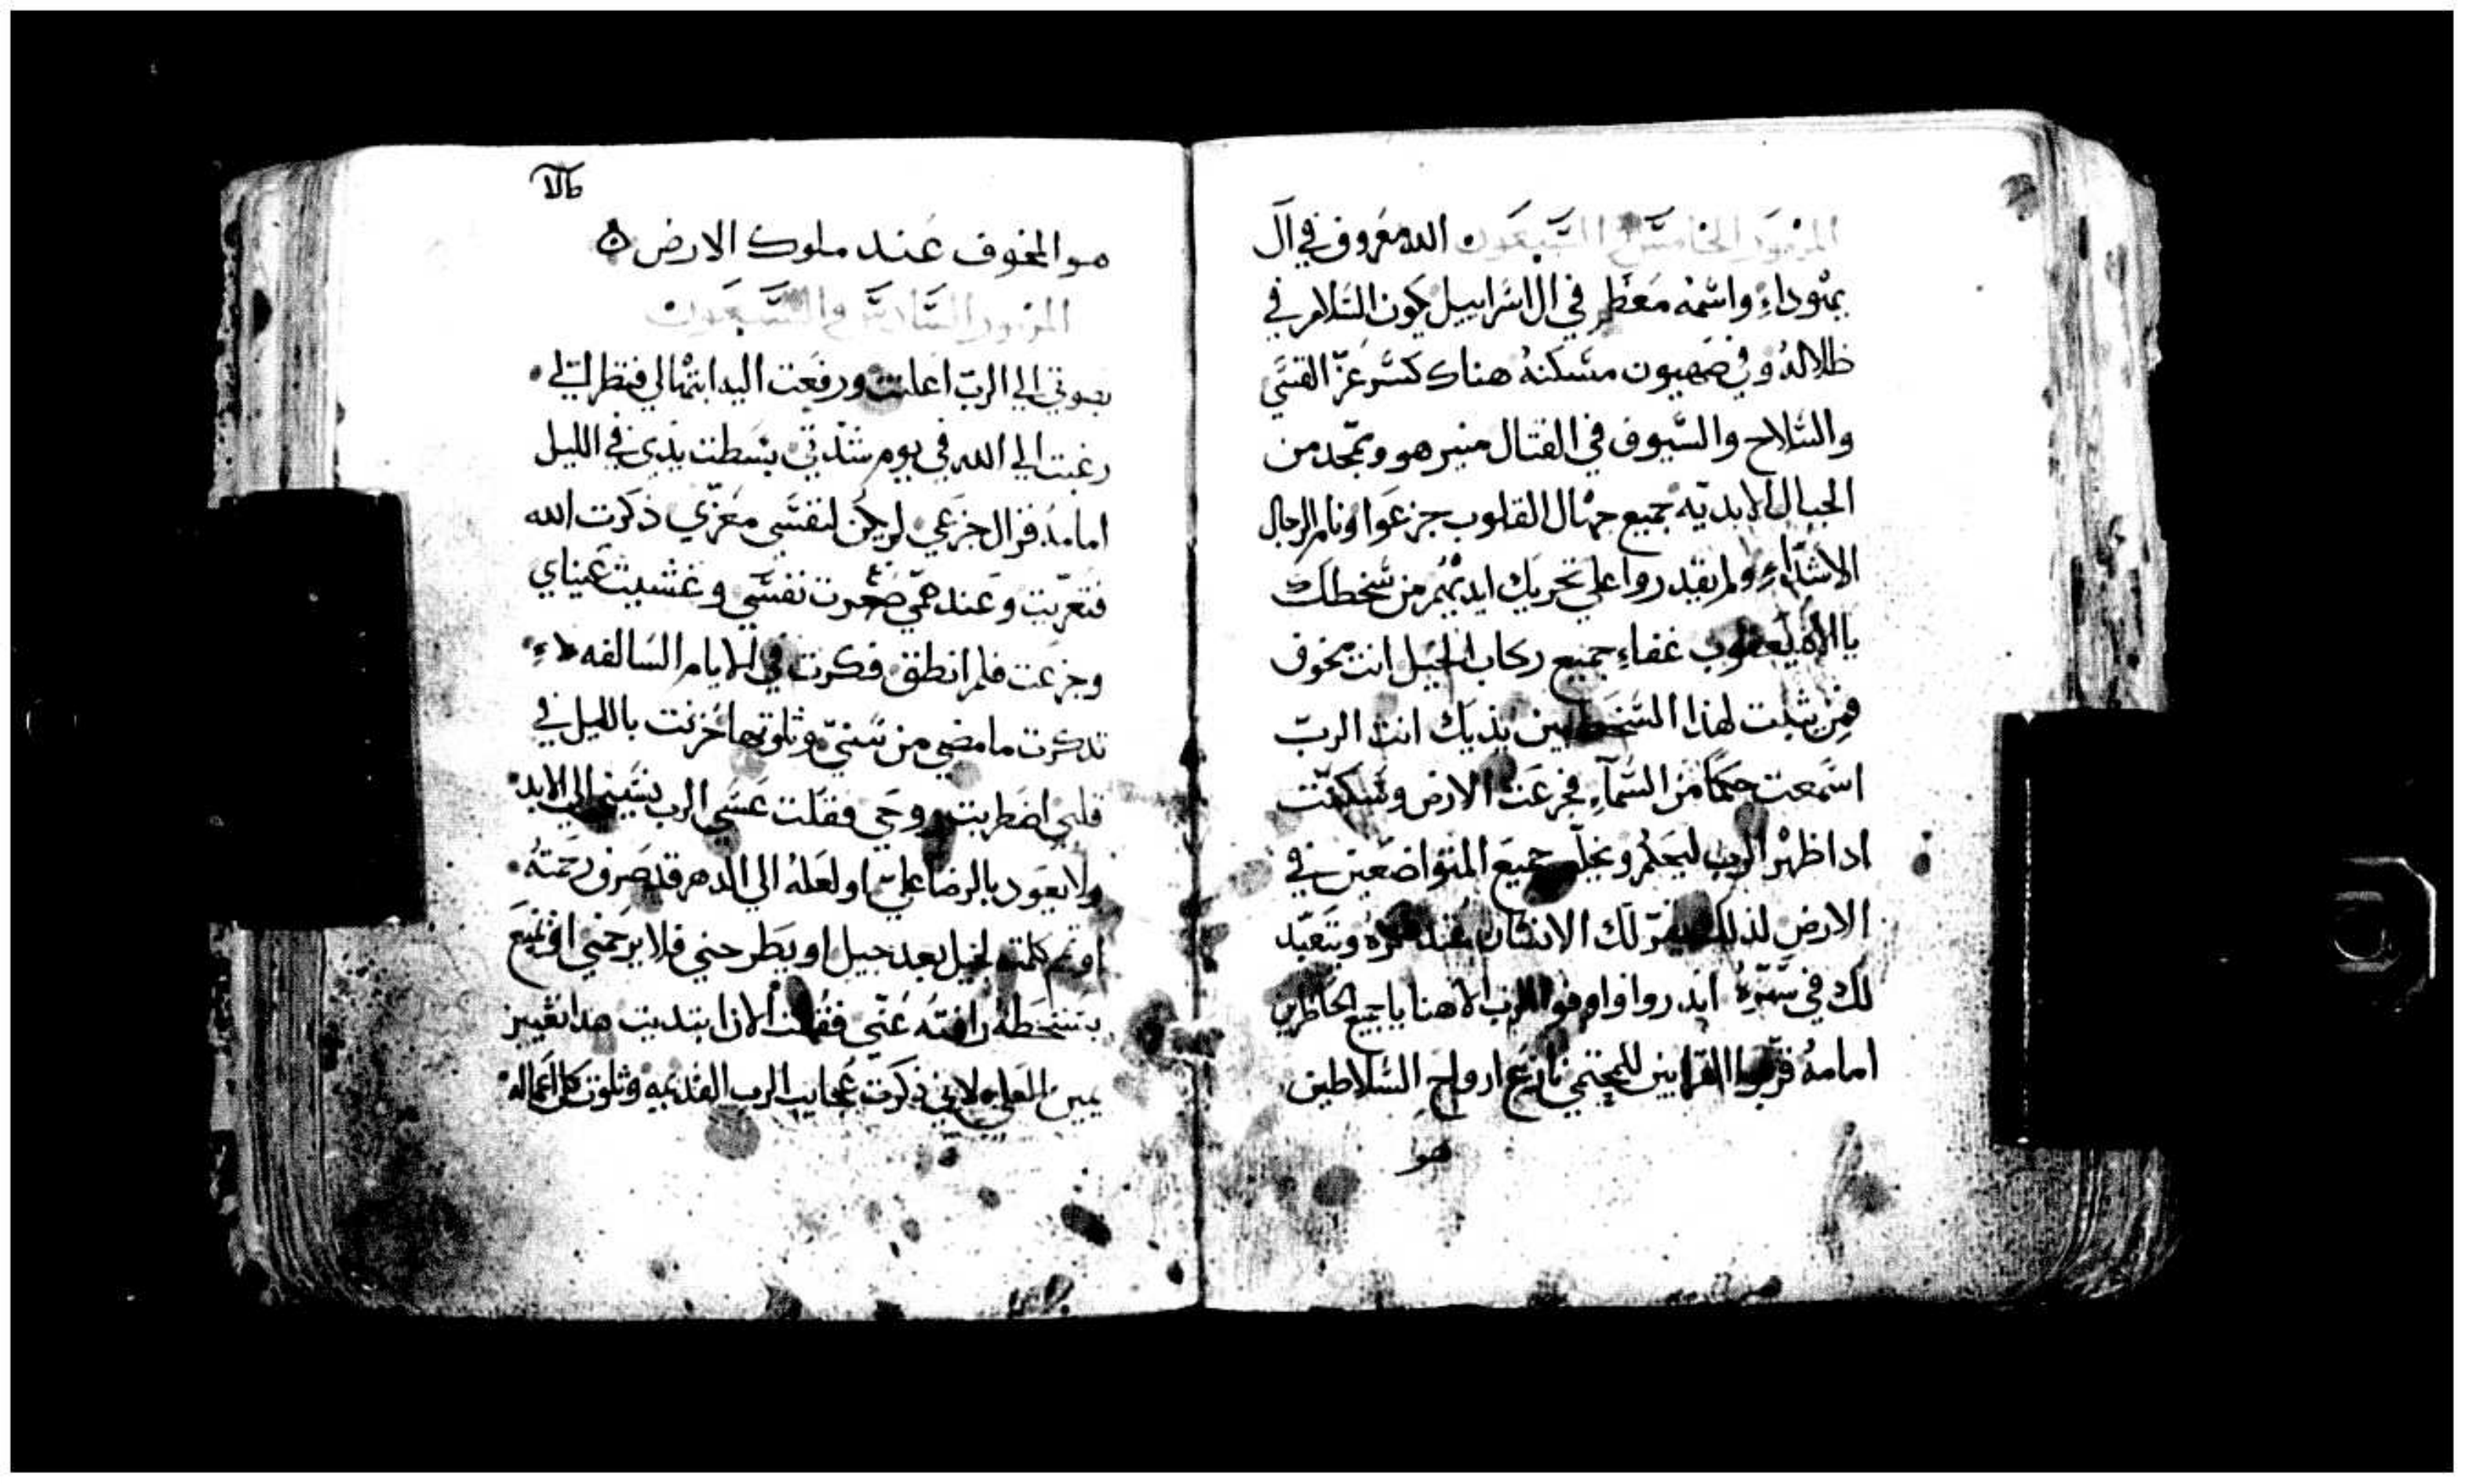 المزمور الخامس والسبعون الله معروف في آل
يهوداءِ واسمه معظم في ال اسراييل يكون السلام في
ظلاله وفي صهيون مسكنه هناك كسر عزّ القسي
والسلاح والسيوف في القتال منير هو وممجد من
الجبال الابديّه جميع جهال القلوب جزعوا ونام الرجال
الاشدّاءِ ولم يقدروا على تحريك ايديهم من سخطك
يا الاه يعقوب غفاءِ جميع ركاب الخيل انت مخوف
فمن يثبت لهذا السخط بين يديك انت الربّ
اسمعت حكمًا من السمآءِ فجزعت الارض وسكنت
اذا ظهر الرب ليحكم ويخلّص جميع المتواضعين في
الارض لذلك يقرّ لك الانسان وتتعيّد
لك في سرّه انذروا واوفوا للرب الاهنا يا جميع الحاظرين
امامه قرّبوا القرابين للمجتبي نازع ارواح السلاطين
هو
هو المخوف عند ملوك الارض
المزمور السادس والسبعون
بصوتي الي الربّ اعلنت ورفعت اليه ابتهالي فنظر الي
رغبت الي الله في يوم شدّتي بسطت يدي في الليل
امامه فزال جزعي لم يكن لنفسي معزّي ذكرت الله
فتعزّيت وعند همّي صغرت نفسي وغشيت عيناي
وجزعت فلم انطق فكرت في الايام السالفه
تذكرت ما مضي من سنيّ وتلوتها حزنت بالليل في
قلبي اضطربت روحي فقلت عسى الرب ينسيني الي الابد
ولا يعود بالرضا علي او لعله الي الدهر قد صرف رحمته
او تم كلمته لجيل بعد جيل او يطرحني فلا يرحمني او يمنع
بسخطه رافته عنّي فقلت الان ابتديت هذا تغيير
يمين العلي لاني ذكرت عجايب الرب القديمه وتلوت كل اعماله